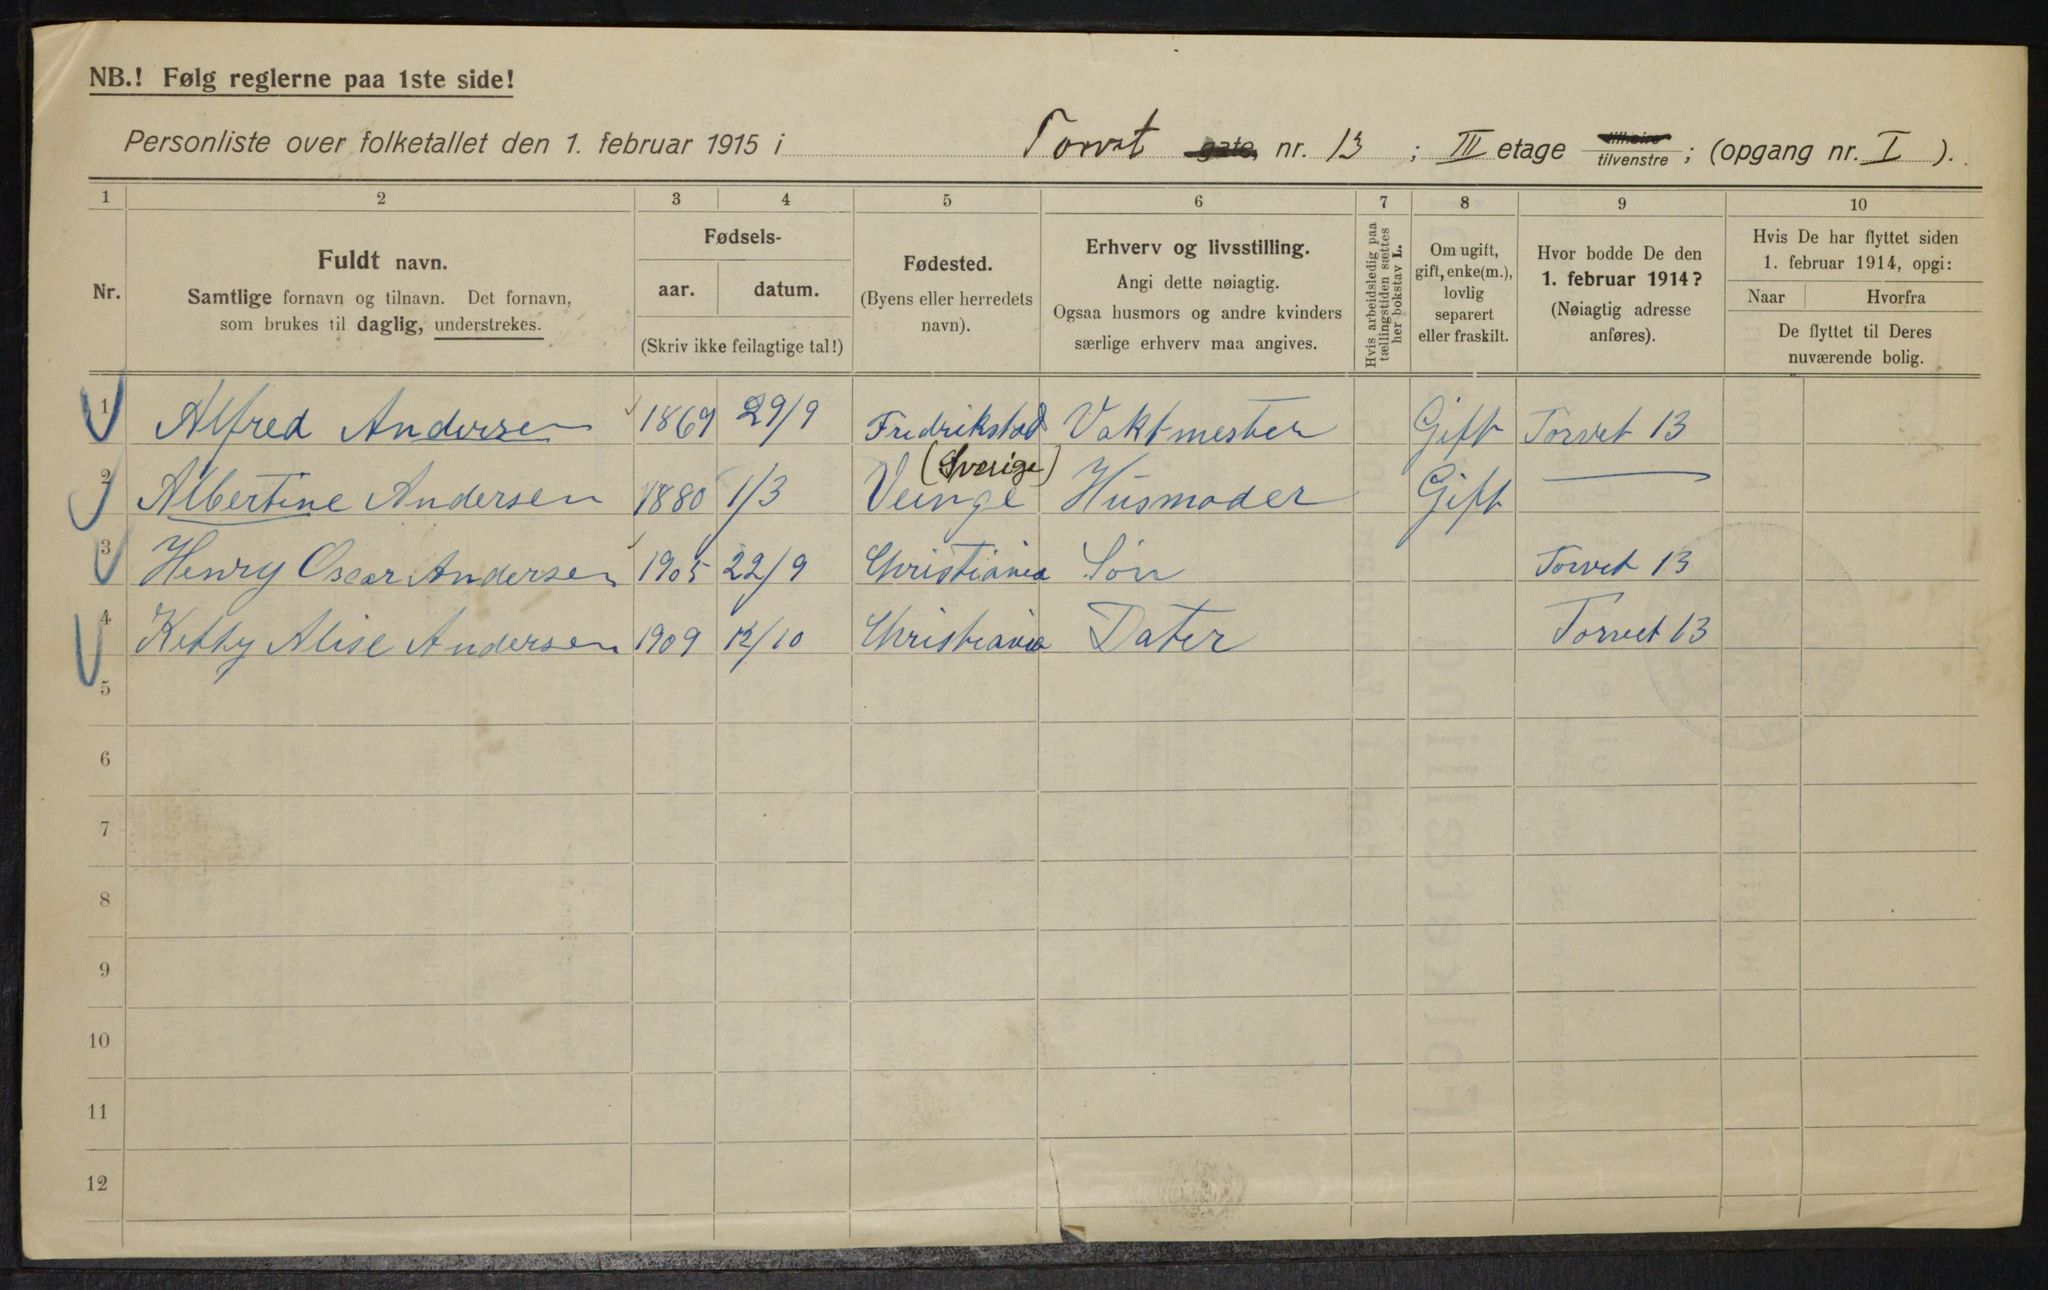 NB.! Følg reglerne paa 1ste side!
Personliste over folketallet den 1. februar 1915 i Torvet gate nr. 13 ; III etage tilhøire tilvenstre ; (opgang nr. I ).
1 2 3 4 5 6 7 8 9 10
Nr.
Fuldt navn.
Samtlige fornavn og tilnavn. Det fornavn,
som brukes til daglig, understrekes.
Fødsels-
aar. datum.
(Skriv ikke feilagtige tal!)
Fødested.
(Byens eller herredets
navn).
Erhverv og livsstilling.
Angi dette nøiagtig.
Ogsaa husmors og andre kvinders
særlige erhverv maa angives.
Hvis arbeidsledig paa
tællingstiden sættes
her bokstav L.
Om ugift,
gift, enke(m.),
lovlig
separert
eller fraskilt.
Hvor bodde De den
1. februar 1914?
(Nøiagtig adresse
anføres).
Hvis De har flyttet siden
1. februar 1914, opgi:
Naar Hvorfra
De flyttet til Deres
nuværende bolig.
1 Alfred Andersen 1869 29/9 Fredrikstad Vaktmester Gift Torvet 13
(Sverige)
2 Albertine Andersen 1880 1/3 Veinge Husmoder Gift —
3 Henry Oscar Andersen 1905 22/9 Christiania Søn Torvet 13
4 Ketty Alise Andersen 1909 12/10 Christiania Dater Torvet 13
5
6
7
8
9
10
11
12